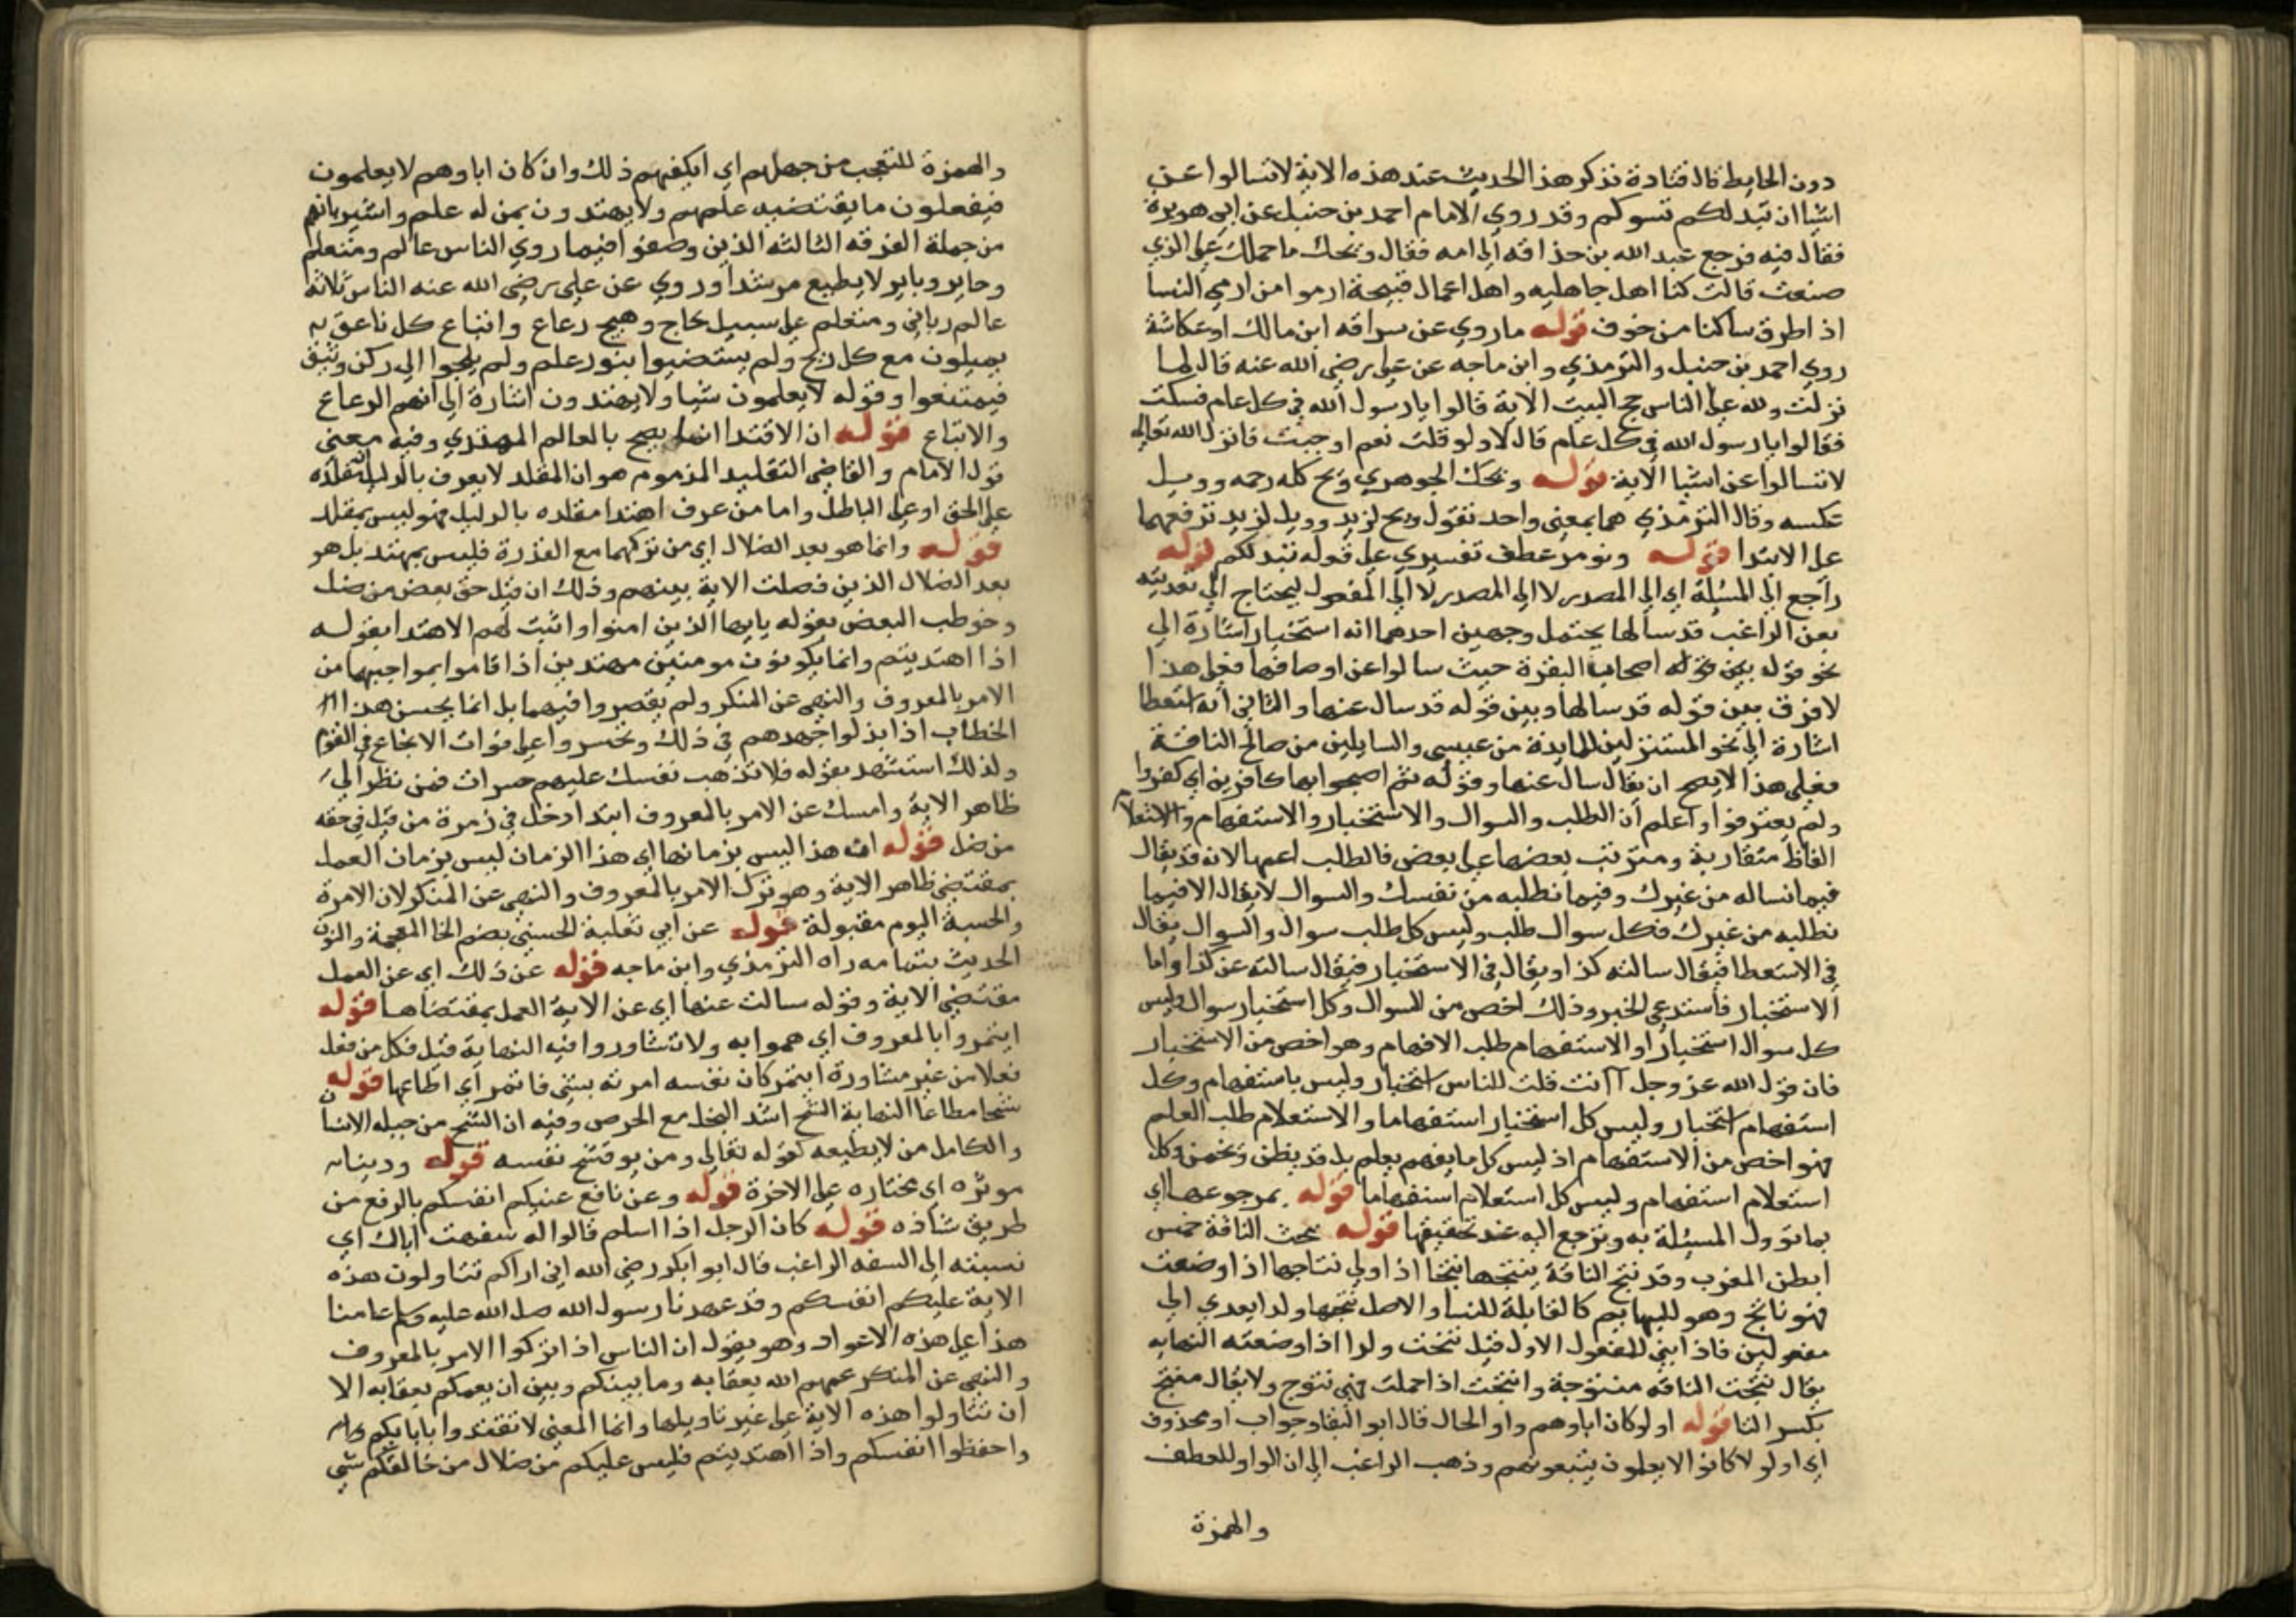 دون الحايط قال قتادة نذكر هذا الحديث عند هذه الاية لا تسالوا عن
اشيا ان تبد لكم تسوكم وقد روي الامام احمد بن حنبل عن ابي هريرة
فقال فيه فرجع عبد الله بن حذافه الي امه فقال ويحك ما حملك علي الذي
صنعت قالت كنا اهل جاهليه واهل اعمال قبيحة ارموا من ارمي النسا
اذ اطرق ساكنا من خوف قوله ما روي عن سراقه ابن مالك او عكاشة
روي احمد بن حنبل والترمذي وابن ماجه عن علي رضي الله عنه قال لما
نزلت ولله علي الناس حج البيت الاية قالوا يا رسول الله في كل عام فسكت
فقالوا يا رسول الله في كل عام قال لا ولو قلت نعم لوجبت فانزل الله تعالي
لا تسالوا عن اشيا الاية قوله ويحك الجوهري ويح كله رحمه وويل
عكسه وقال الترمذي هما بمعني واحد تقول ويح لزيد وويل لزيد ترفعهما
علي الابتدا قوله ونومر عطف تفسيري علي قوله تبد لكم قوله
راجع الي المسئلة اي الي المصدر لا الي المفعول ليحتاج الي تعديته
بعن الراغب قد سالها يحتمل وجهين احدهما انه استخبار اشارة الي
نحو قوله بين قوله اصحاب البقرة حيث سالوا عن اوصافها فعلي هذا
لا فرق بين قوله قد سالها وبين قوله قد سال عنها والثاني انه استعطا
اشارة الي نحو المستنزلين للمايدة من عيسي والسايلين من صالح الناقة
فعلي هذا لا يصح ان يقال سال عنها وقوله ثم اصبحوا بها كافرين اي كفروا
ولم يعترفوا واعلم ان الطلب والسوال والاستخبار والاستفهام والاستعلام
الفاظ متقاربة ومترتب بعضها علي بعض فالطلب اعمها لانه قد يقال
فيما تساله من غيرك وفيما تطلبه من نفسك والسوال لا يقال الا فيما
تطلبه من غيرك فكل سوال طلب وليس كل طلب سوال والسوال يقال
في الاستعطا فيقال سالته كذا ويقال في الاستخبار فيقال سالته عن كذا واما
الاستخبار فاستدعي الخبر وذلك اخص من السوال وكل استخبار سوال وليس
كل سوال استخبارا والاستفهام طلب الافهام وهو اخص من الاستخبار
فان قول الله عز وجل اانت قلت للناس استخبار وليس باستفهام وكل
استفهام استخبار وليس كل استخبار استفهاما والاستعلام طلب العلم
فهو اخص من الاستفهام اذ ليس كل ما يفهم يعلم بل قد يظن ويخمن وكل
استعلام استفهام وليس كل استعلام استفهاما قوله بمرجوعها اي
بما تؤول المسئلة به وترجع اليه عند تحقيقها قوله نجت الناقة خمس
ابطن المغرب وقد نتج الناقة ينتجها نتجا اذا ولي نتاجها اذا وضعت
فهو ناتج وهو للبهايم كالقابلة للنسا والاصل نتجها ولدا يعدي الي
مفعولين فاذا بني للمفعول الاول قيل نتجت ولدا اذا وضعته النهايه
يقال نتجت الناقه منتوجة وانتجت اذا حملت فهي نتوج ولا يقال منتج
بكسر التا قوله اولو كان اباوهم واو الحال قال ابو البقا وجواب لو محذوف
اي اولو لا كانوا لا يعلمون يتبعونهم وذهب الراغب الي ان الواو للعطف
والهمزة
والهمزة للتعجب من جهلهم اي ايكفيهم ذلك وان كان اباوهم لا يعلمون
فيفعلون ما يقتضيه علمهم ولا يهتدون بمن له علم واشير بانهم
من جملة الفرقه الثالثه الذين وصفوا فيما روي الناس عالم ومتعلم
وحاير وباير لا يطيع مرشدا وروي عن علي رضي الله عنه الناس ثلاثه
عالم رباني ومتعلم علي سبيل نجاح وهمج رعاع واتباع كل ناعق به
يميلون مع كل ريح ولم يستضيوا بنور علم ولم يلجوا الي ركن وثيق
فيمتنعوا وقوله لا يعلمون شيا ولا يهتدون اشارة الي انهم الرعاع
والاتباع قوله ان الاقتدا انما يصح بالعالم المهتدي وفيه معني
قول الامام والقاضي التقليد المذموم هو ان المقلد لا يعرف بالدليل
علي الحق او علي الباطل واما من عرف اهتدا مقلده بالدليل فهو ليس بمقلد
قوله وانما هو بعد الضلال اي من تركهما مع القدرة فليس بمهتد بل هو
بعد الضلال الذين فصلت الاية بينهم وذلك ان قيل حق بعض من ضل
وخوطب البعض بقوله يا ايها الذين امنوا واثبت لهم الاهتدا بقوله
اذا اهتديتم وانما يكونون مومنين مهتدين اذا قاموا بمواجبهما من
الامر بالمعروف والنهي عن المنكر ولم يقصروا فيهما بل انما يحسن هذا
الخطاب اذا بذلوا جهدهم في ذلك وتحسروا علي فوات الانجاع في القوم
ولذلك استشهد بقوله فلا تذهب نفسك عليهم حسرات فمن نظر الي
ظاهر الاية وامسك عن الامر بالمعروف ابتدا دخل في زمرة من قيل في حقه
من ضل قوله ان هذا ليس بزمانها اي هذا الزمان ليس بزمان العمل
بمقتضي ظاهر الاية وهو ترك الامر بالمعروف والنهي عن المنكر لان الامرة
والحسبة اليوم مقبولة قوله عن ابي ثعلبة الخشني بضم الخا المعجمة والنون
الحديث بتمامه رواه الترمذي وابن ماجه قوله عن ذلك اي عن العمل
مقتضي الاية وقوله سالت عنها اي عن الاية العمل بمقتضاها قوله
ايتمروا بالمعروف اي هموا به ولا تشاوروا فيه النهاية قيل فكل من فعل
فعلا من غير مشاورة ايتمر كان نفسه امرته بشي فاتمر اي اطاعها قوله
شحا مطاعا النهاية الشح اشد البخل مع الحرص وفيه ان الشح من جبله الانسان
والكامل من لا يطيعه كقوله تعالي ومن يوق شح نفسه قوله ودينا
موثره اي مختاره علي الاخرة قوله وعن نافع عليكم انفسكم بالرفع من
طريق شاذه قوله كان الرجل اذا اسلم قالوا له سفهت اباك اي
نسبته الي السفه الراغب قال ابو بكر رضي الله اني اراكم تتاولون هذه
الاية عليكم انفسكم وقد عهدنا رسول الله صلي الله عليه وسلم عامنا
هذا علي هذه الاعواد وهو يقول ان الناس اذا تركوا الامر بالمعروف
والنهي عن المنكر عمهم الله بعقابه وما بينكم وبين ان يعمكم بعقابه الا
ان تتاولوا هذه الاية علي غير تاويلها وانما المعني لا تقتدوا بابايكم
واحفظوا انفسكم واذا اهتديتم فليس عليكم من ضلال من خالفكم شي